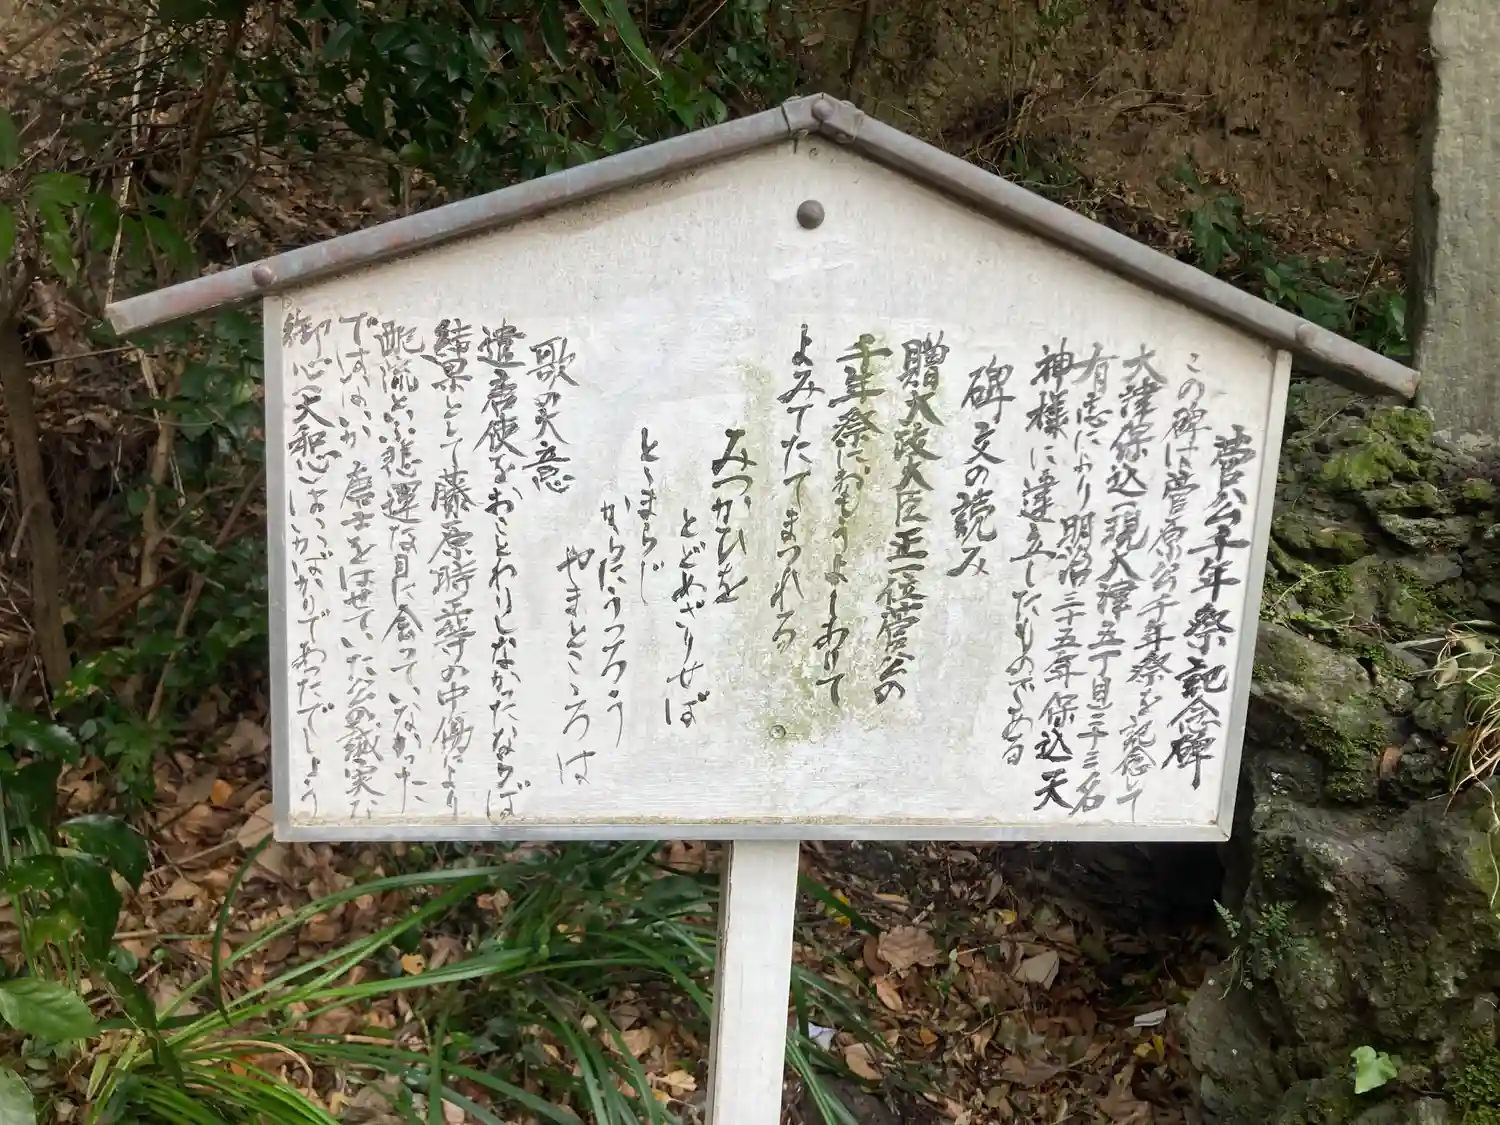 菅公千年祭記念碑
この碑は菅原公千年祭を記念して
大津保込(現大津五丁目)三十三名
有志により明治三十五年保込天
神様に建立したものである
碑文の読み
贈大政大臣正一位菅公の
千年祭におもうよしありて
よみてたてまつれる
みつかひを
とどめざりせば
とゝまらじ
からにうつろう
やまとこゝろは
歌の大意
遣唐使をおことわりしなかったならば
結果として藤原時平等の中傷により
配流という悲運な目に会っていなかった
ではないか 唐土をはせていた公の誠実な
御心(大和心)はいかばかりであったでしょう